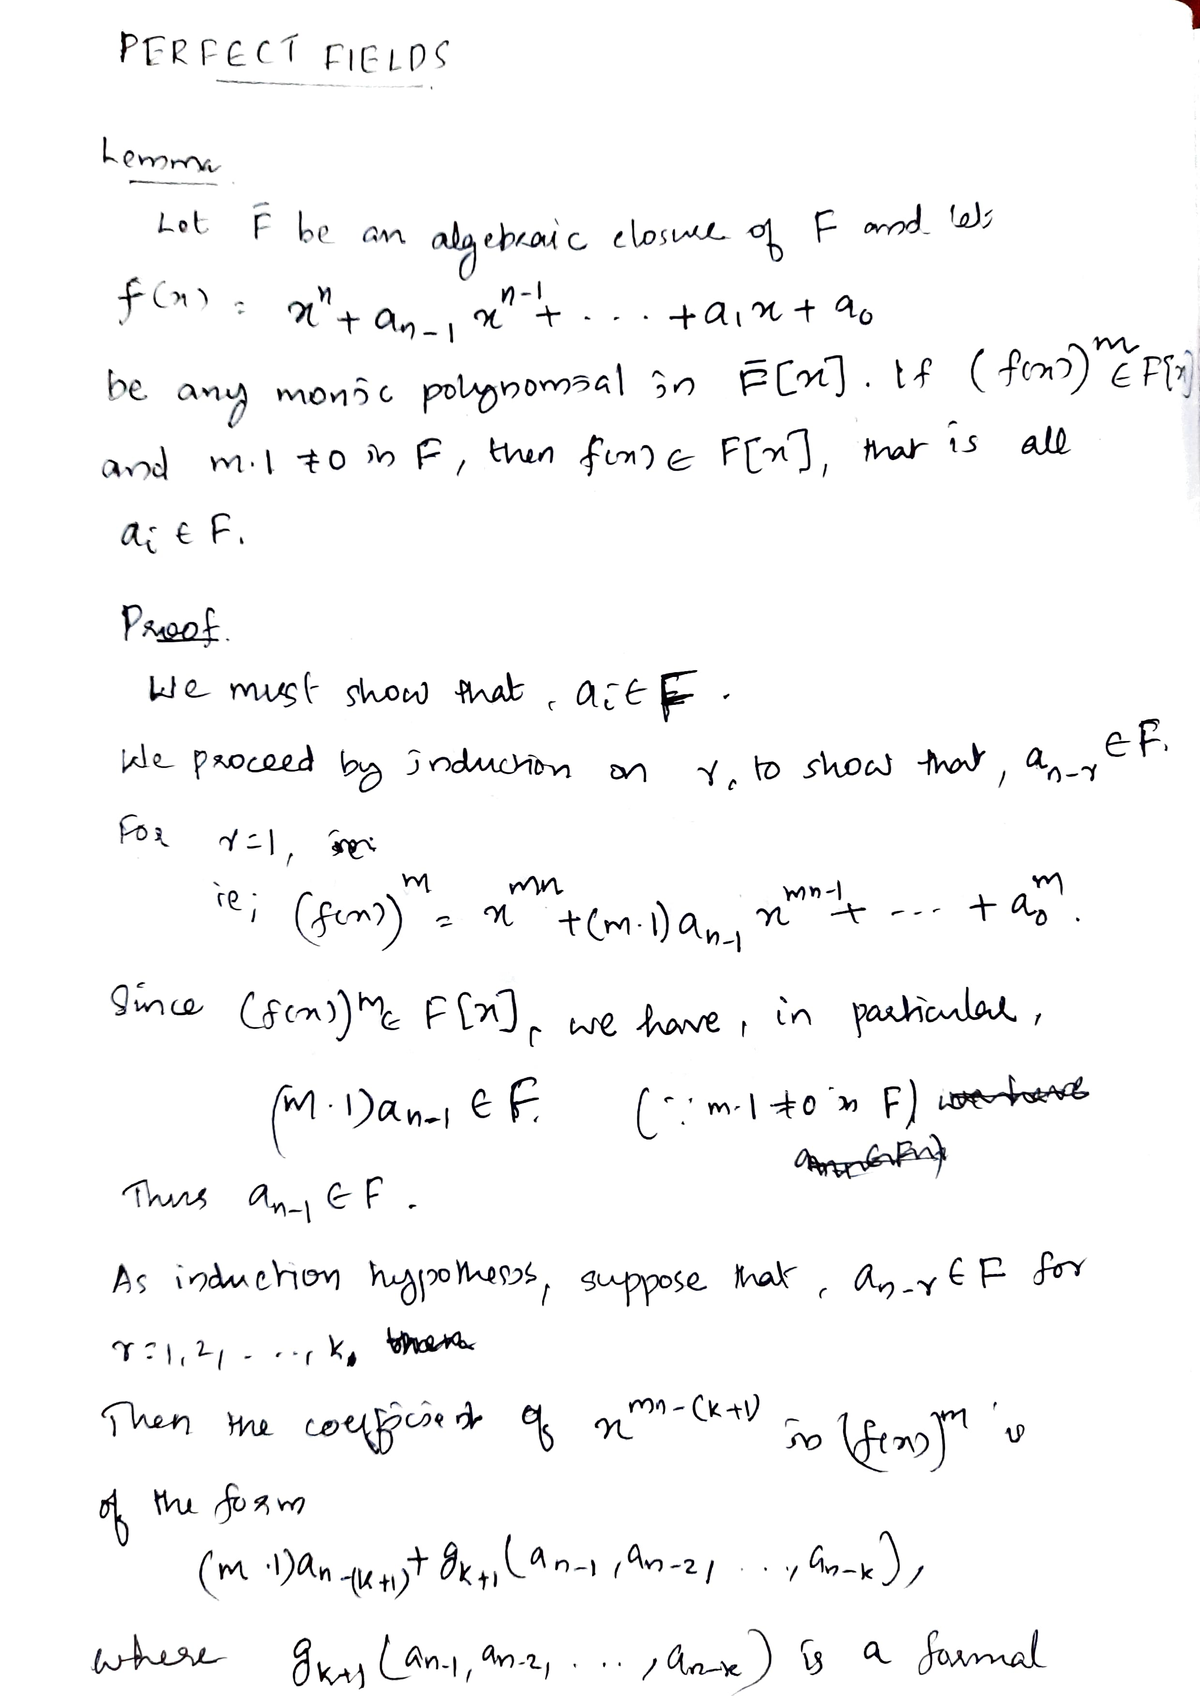 PERFECT FIELDS
Lemma
Let F̄ be an algebraic closure of F and let
f(x) = xⁿ + aₙ₋₁ xⁿ⁻¹ + . . . + a₁x + a₀
be any monic polynomial in F̄[x]. If (f(x))ᵐ ∈ F[x]
and m·1 ≠ 0 in F, then f(x) ∈ F[x], that is all
aᵢ ∈ F.
Proof.
We must show that, aᵢ ∈ F.
We proceed by induction on r, to show that, aₙ₋ᵣ ∈ F.
For r=1,
ie; (f(x))ᵐ = xᵐⁿ + (m·1) aₙ₋₁ xᵐⁿ⁻¹ + --- + a₀ᵐ.
Since (f(x))ᵐ ∈ F[x], we have, in particular,
(m·1)aₙ₋₁ ∈ F. (∵ m·1 ≠ 0 in F)
Thus aₙ₋₁ ∈ F.
As induction hypothesis, suppose that, aₙ₋ᵣ ∈ F for
r=1,2,- ..., k,
Then the coefficient of xᵐⁿ⁻⁽ᵏ⁺¹⁾ in (f(x))ᵐ is
of the form
(m·1)aₙ₋₍ₖ₊₁₎ + gₖ₊₁(aₙ₋₁, aₙ₋₂, ..., aₙ₋ₖ),
where gₖ₊₁(aₙ₋₁, aₙ₋₂, ..., aₙ₋ₖ) is a formal